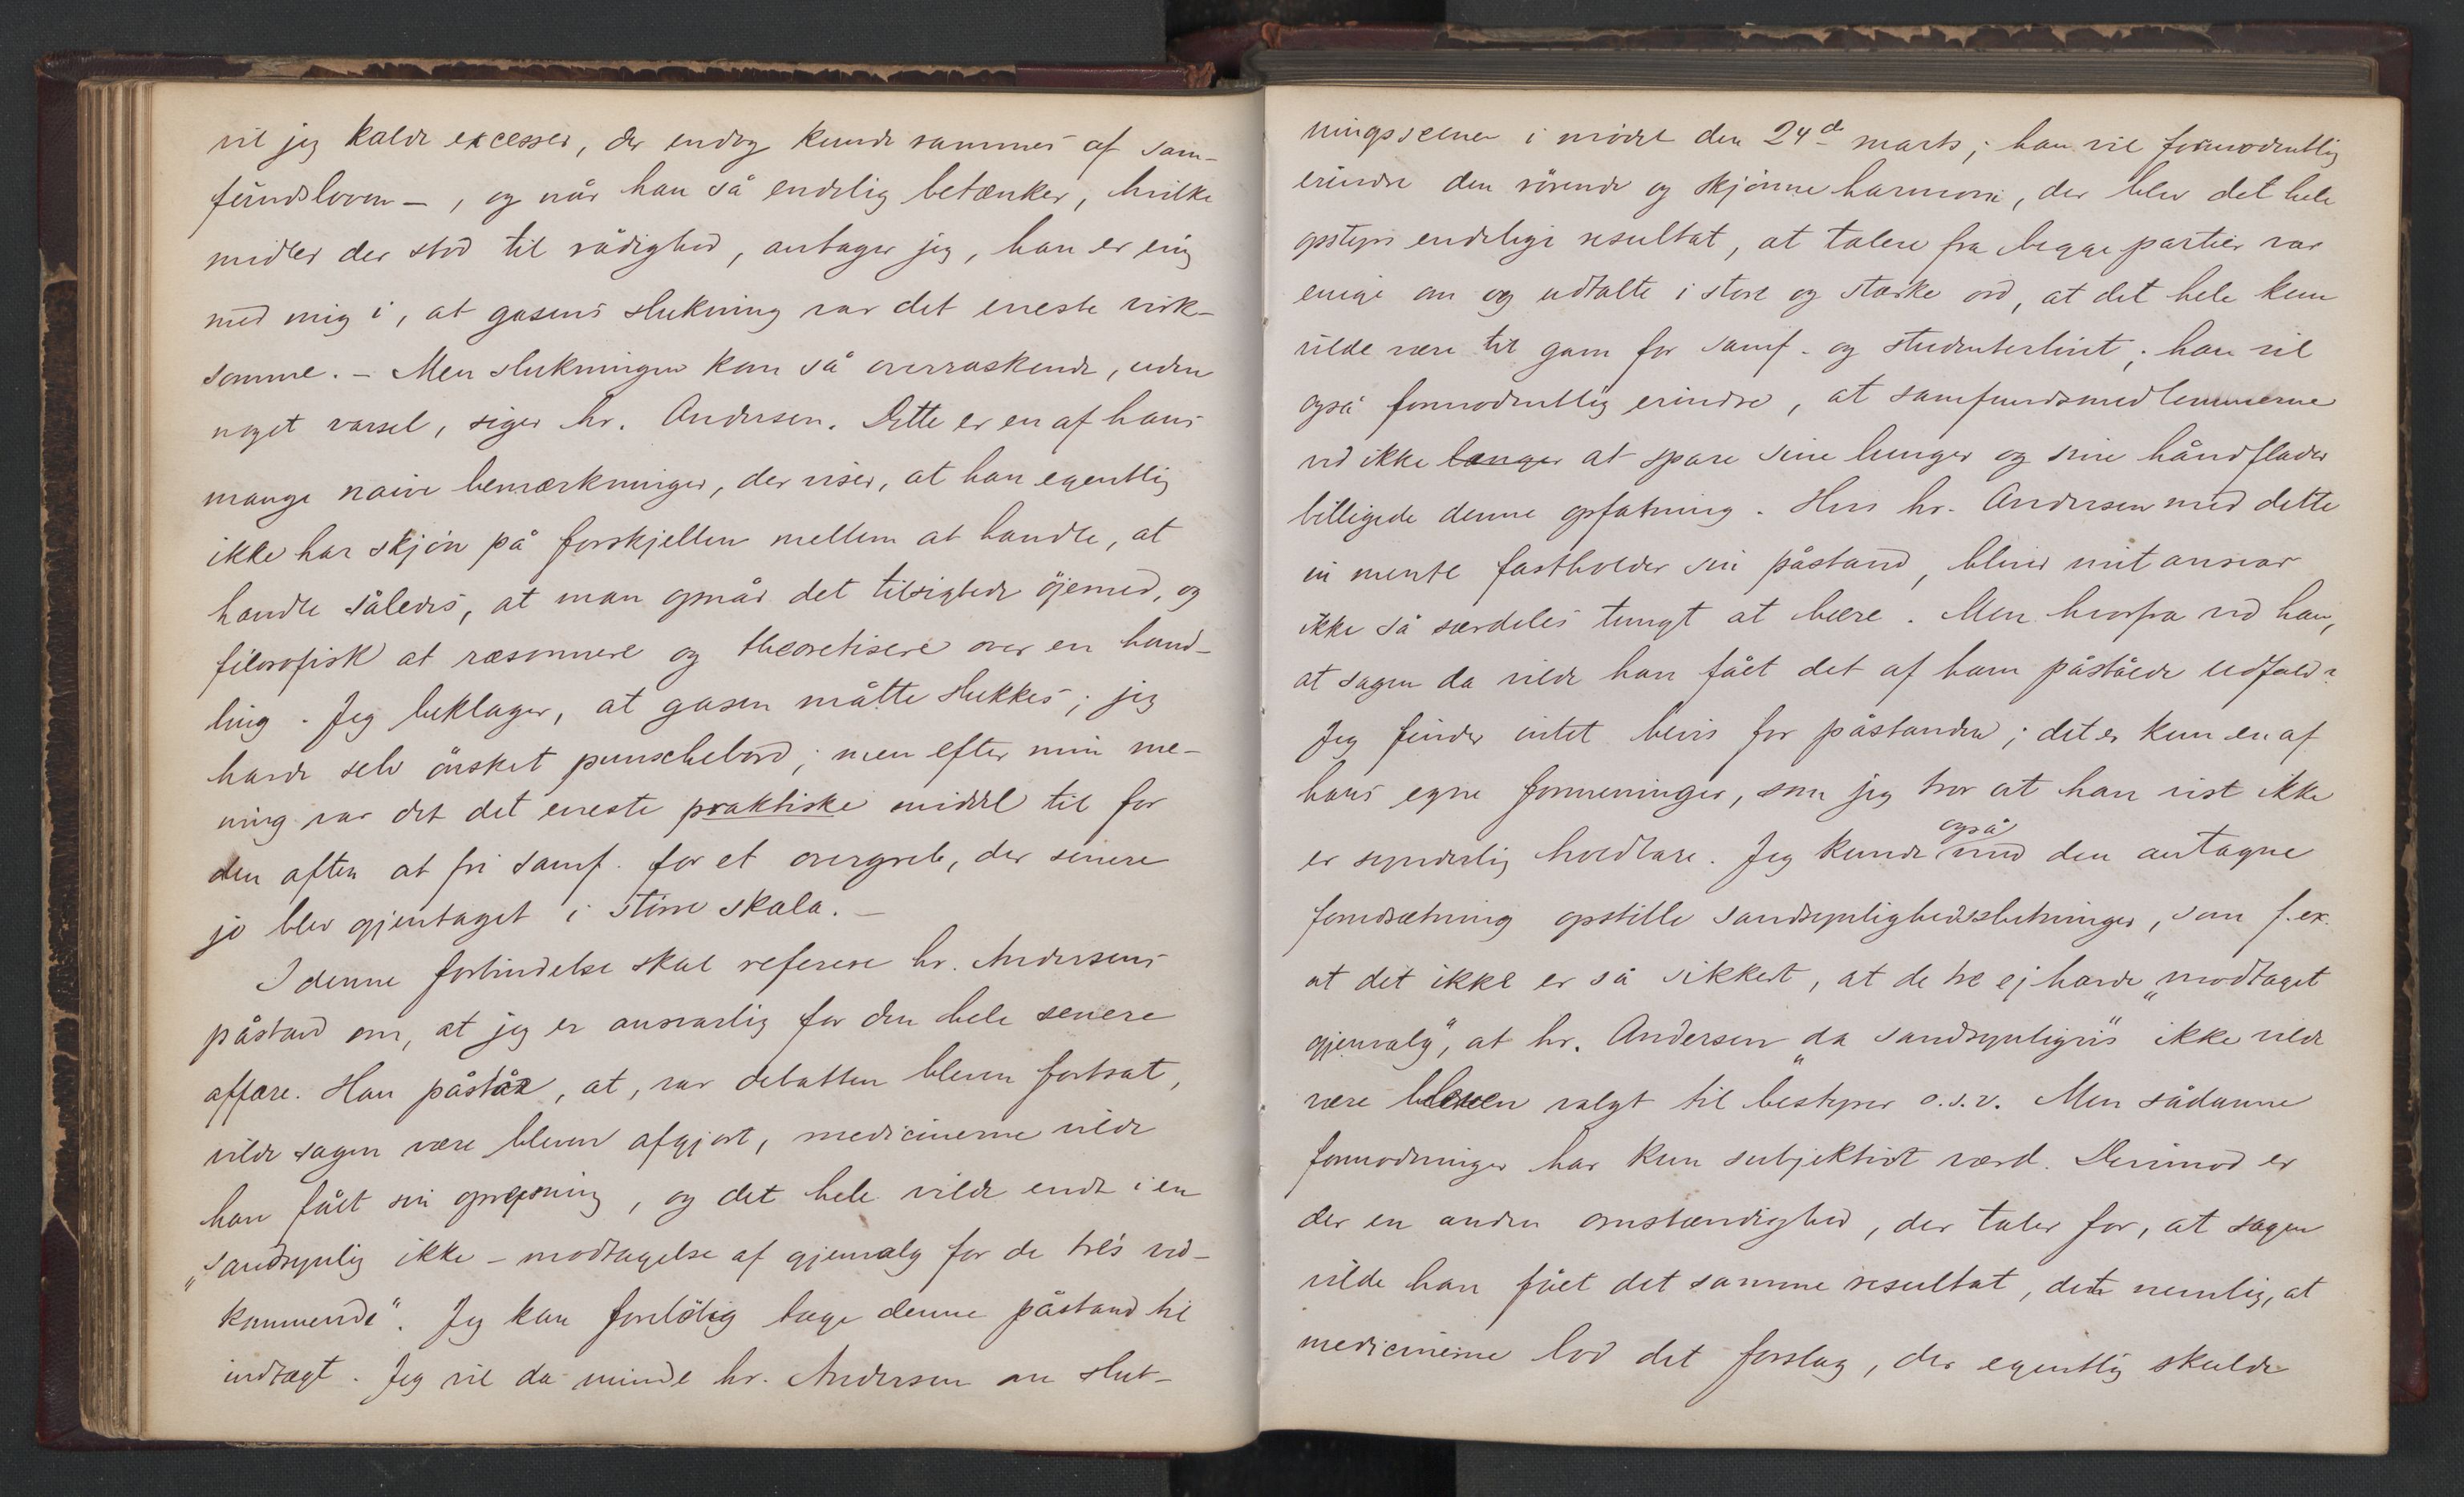 vil jeg kalde excesser, der endog kunde rammes af sam-
fundsloven –, og når han så endelig betænker, hvilke
midler der stod til rådighed, antager jeg, han er enig
med mig i, at gasens slukning var det eneste virk-
somme. – Men slukningen kom så overraskende, uden
noget varsel, siger hr. Andersen. Dette er en af hans
mange naive bemærkninger, der viser, at han egentlig
ikke har skjøn på forskjellen mellem at handle, at
handle således, at man opnår det tilsigtede öjemed, og
filosofisk at ræsonnere og theoretisere over en hand-
ling. Jeg beklager, at gasen måtte slukkes; jeg
havde selv önsket punschebord; men efter min me-
ning var det det eneste praktiske middel til for
den aften at fri samf. for et overgreb, der senere
jo blev gjentaget i större skala. –
I denne forbindelse skal referere hr. Andersens
påstand om, at jeg er ansvarlig for den hele senere
affære. Han påstår, at, var debatten bleven fortsat,
vilde sagen være bleven afgjort, medicinerne vilde
have fået sin oprejsning, og det hele vilde endt i en
„sandsynlig ikke-modtagelse af gjenvalg for de tre's ved-
kommende“. Jeg kan forelöbig tage denne påstand til
indtægt. Jeg vil da minde hr. Andersen om slut-
ningsscenen i mödet den 24de marts; han vil formodentlig
erindre den rörende og skjönne harmoni, der blev det hele
opstyrs endelige resultat, at talere fra begge partier var
enige om og udtalte i store og stærke ord, at det hele kun
vilde være til gavn for samf. og studenterlivet; han vil
også formodentlig erindre, at samfundsmedlemmerne
ved ikke længer at spare sine lunger og sine håndflader
billigede denne opfatning. Hvis hr. Andersen med dette
in mente fastholder sin påstand, bliver mit ansvar
ikke så særdeles tungt at bære. Men hvorfra ved han,
at sagen da vilde have fået det af ham påståede udfald?
Jeg finder intet bevis for påstanden; det er kun en af
hans egne formeninger, som jeg tror at have vist ikke
er synderlig holdbare. Jeg kunde også med den antagne
forudsætning opstille sandsynlighedsslutninger, som f. ex.
at det ikke er så sikkert, at de tre ej havde „modtaget
gjenvalg“, at hr. Andersen „da sandsynligvis“ ikke vilde
være bleven valgt til bestyrer o.s.v. Men sådanne
formodninger har kun subjektivt værd. Derimod er
der en anden omstændighed, der taler for, at sagen
vilde have fået det samme resultat, den nemlig, at
medicinerne lod det forslag, der egentlig skulde